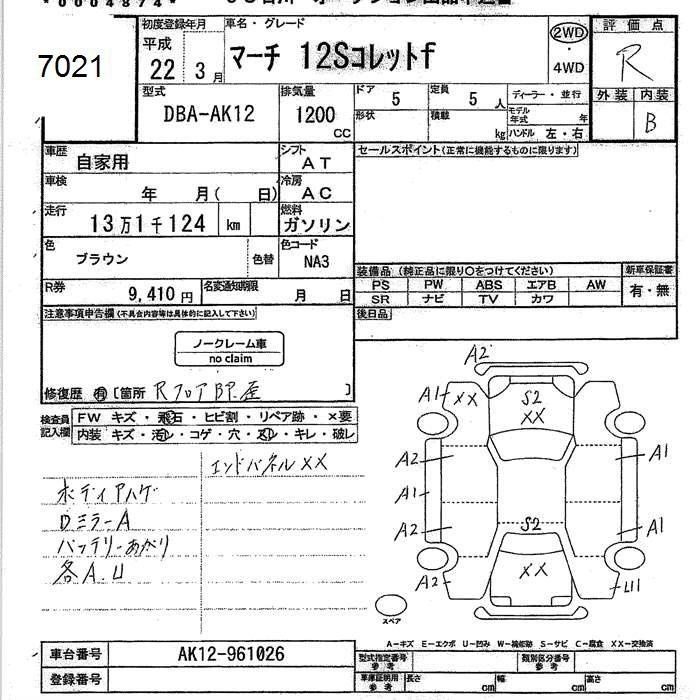 *0004874*
7021
初度登録年月
平成
22 3月
車名・グレード
マーチ 12Sコレットf
2WD
・
4WD
評価点
R
外装 内装
B
型式
DBA-AK12
排気量
1200
CC
ドア 5
定員 5 人
ディーラー・並行
形状
積載 kg
モデル年式 年
ハンドル 左・右
車歴 自家用
シフト AT
セールスポイント(正常に機能するものに限ります)
車検 年 月( 日)
冷房 AC
走行 13万1千124 km
燃料 ガソリン
色 ブラウン 色替
色コード NA3
装備品 (純正品に限り○をつけてください)
新車保証書
PS PW ABS エアB AW
SR ナビ TV カワ
有・無
R券 9,410円
名変通知期限 月 日
後日品
注意事項申告欄(不具合内容等は具体的に記入して下さい)
ノークレーム車
no claim
修復歴 有 [箇所 RフロアBP.歪 ]
検査員記入欄
FW キズ・飛石・ヒビ割・リペア跡・×要
内装 キズ・汚レ・コゲ・穴・スレ・キレ・破レ
エンドパネルXX
ボディアハゲ
ロミラーA
バッテリーあがり
各A.U
A2
A1 XX
S2
XX
A2 A1
A1
A2 S2 A1
A2 XX U1
スペア
A-キズ E-エクボ U-凹み W-補修跡 S-サビ C-腐食 XX-交換済
車台番号 AK12-961026
登録番号
型式指定番号参考
類別区分番号参考
車庫証明用参考
長さ cm 幅 cm 高さ cm